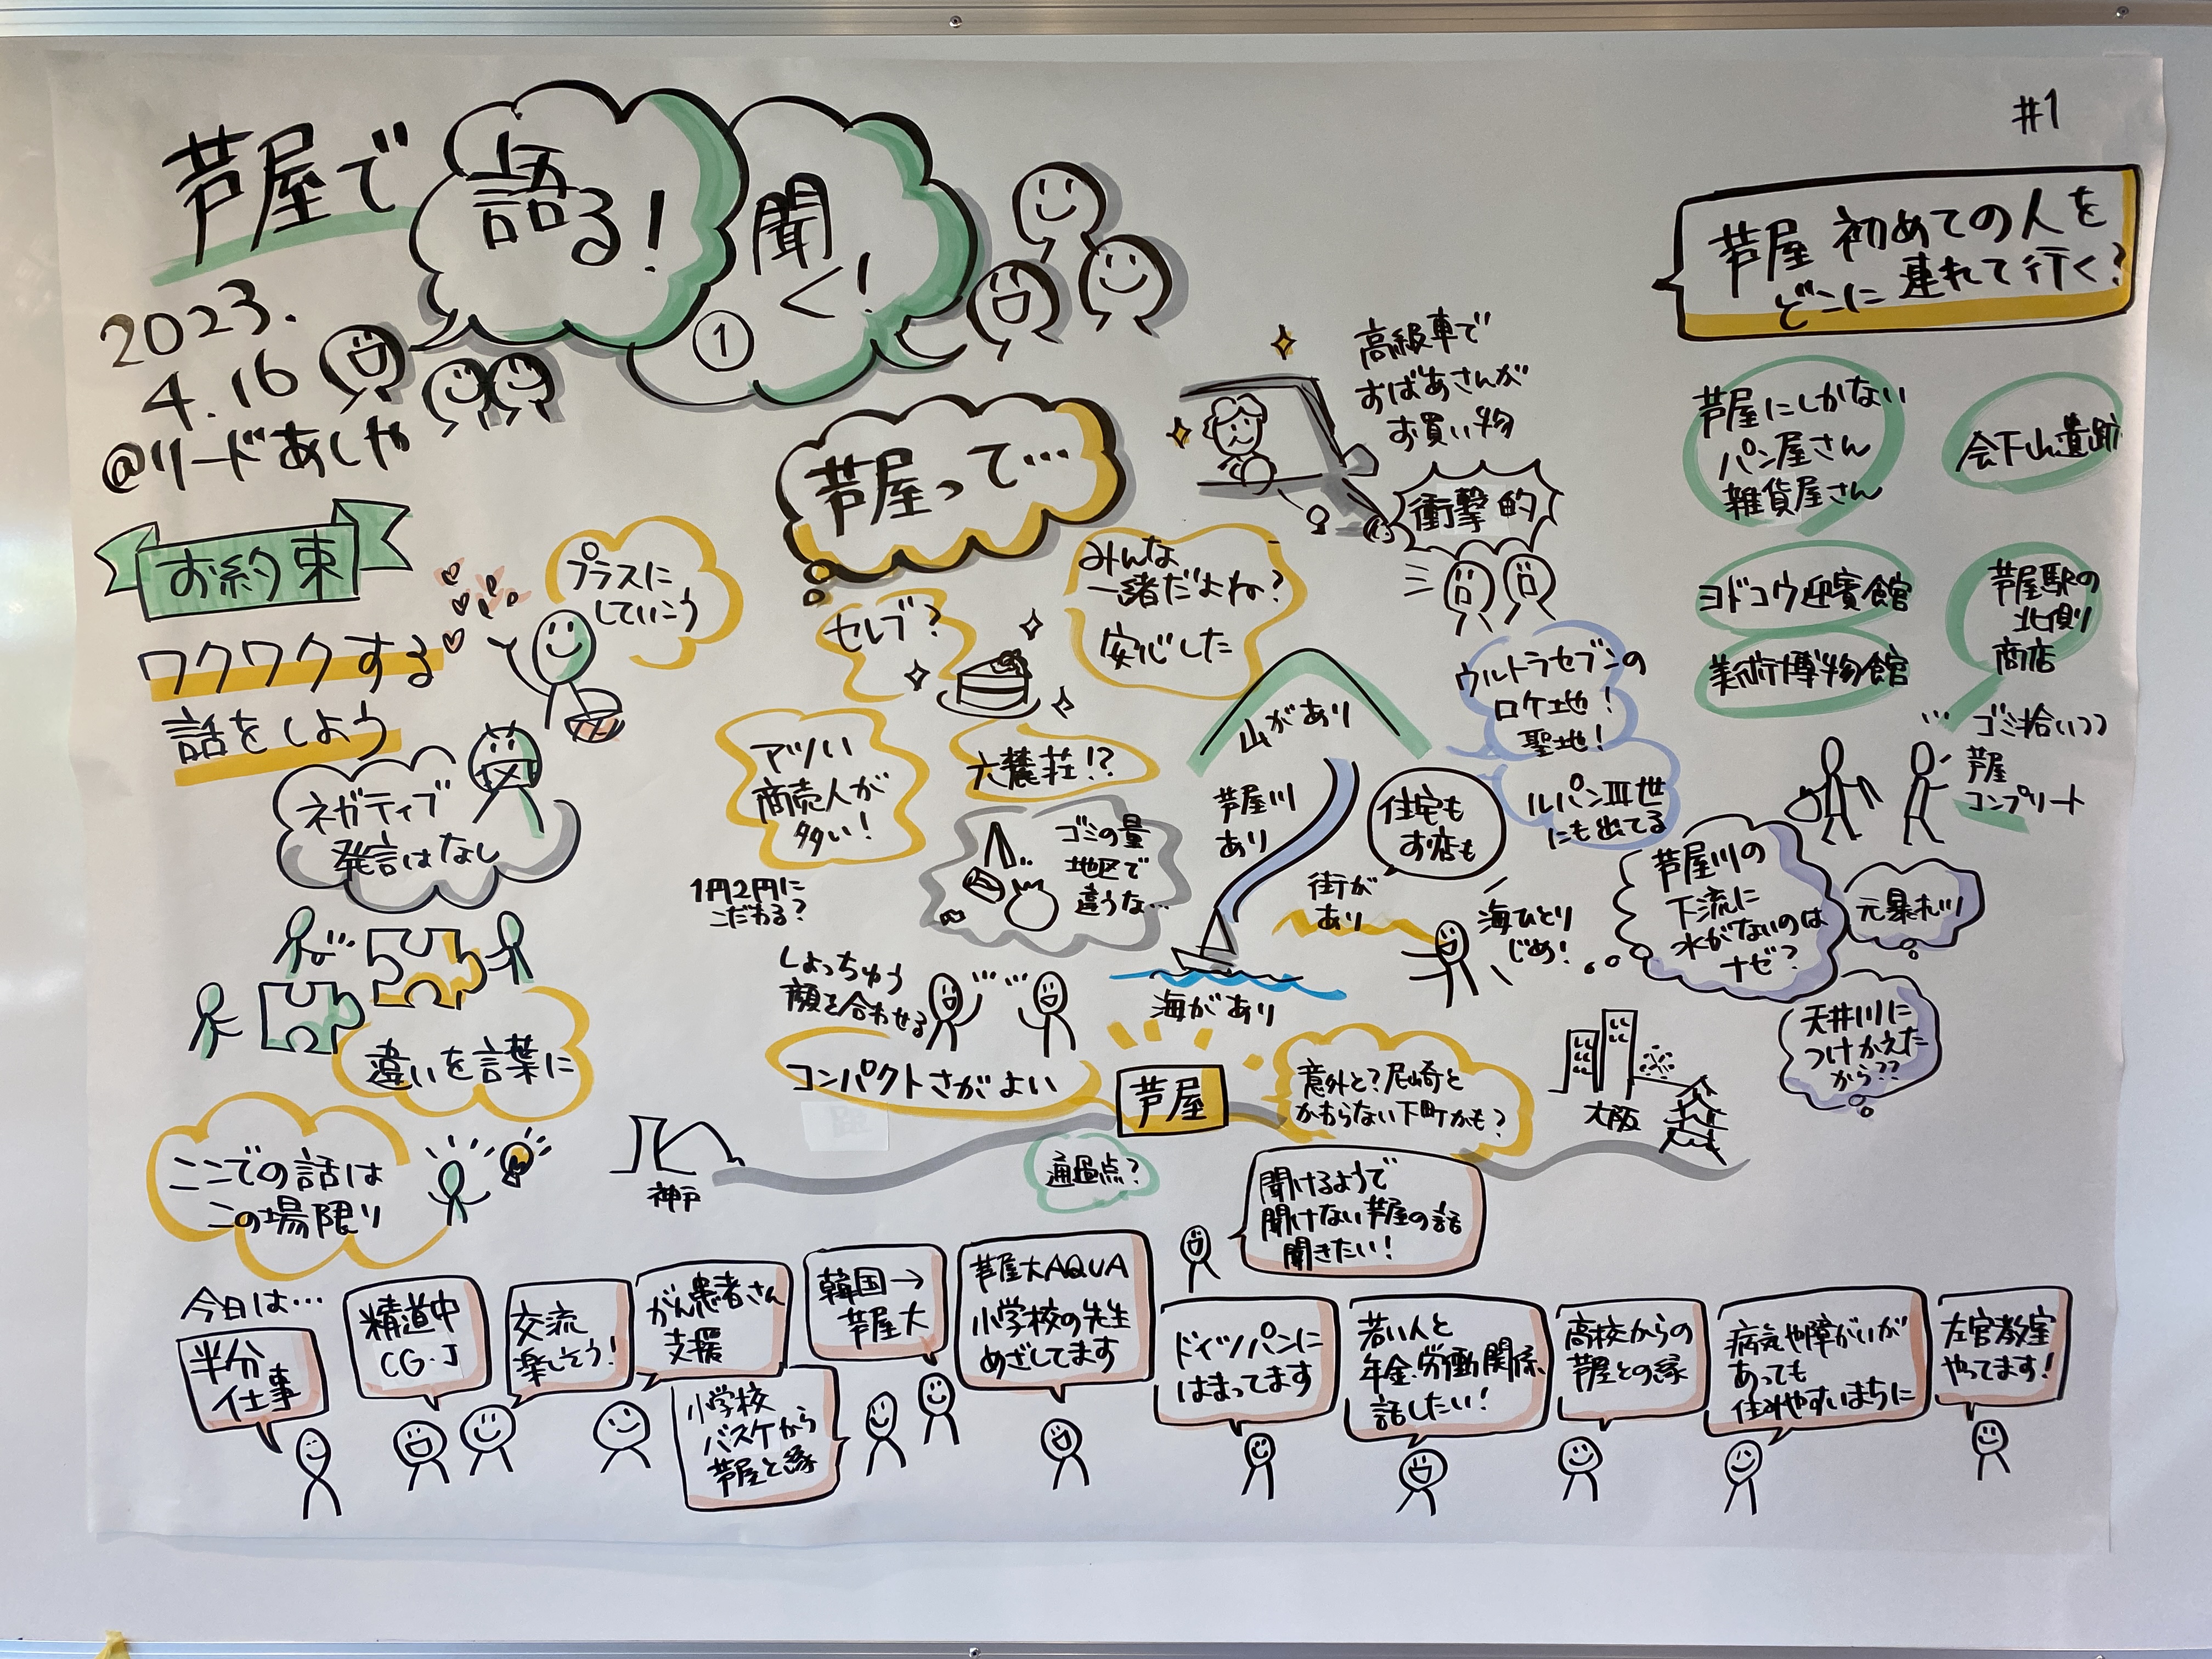 #1
芦屋で
語る!
聞
く!
①
2023.
4.16
@リードあしや
お約束
ワクワクする
話をしよう
プラスに
していこう
ネガティブ
発言はなし
違いを言葉に
ここでの話は
この場限り
芦屋って…
セレブ?
みんな
一緒だよね?
安心した
高級車で
おばあさんが
お買い物
衝撃的
アツい
商売人が
多い!
六麓荘!?
1円2円に
こだわる?
ゴミの量
地区で
違うな…
しょっちゅう
顔を合わせる
コンパクトさがよい
山があり
芦屋川
あり
住宅も
お店も
街が
あり
海があり
海ひとり
じめ!
ウルトラセブンの
ロケ地!
聖地!
ルパンⅢ世
にも出てる
芦屋川の
下流に
水がないのは
ナゼ?
元暴れ川
天井川に
つけかえた
から??
芦屋
意外と?尼崎と
かわらない下町かも?
大阪
神戸
通過点?
芦屋 初めての人を
どこに連れて行く?
芦屋にしかない
パン屋さん
雑貨屋さん
会下山遺跡
ヨドコウ迎賓館
美術博物館
芦屋駅の
北側
商店
ゴミ拾いつつ
芦屋
コンプリート
聞けるようで
聞けない芦屋の話
聞きたい!
今日は…
半分
仕事
精道中
CG.J
交流
楽しそう!
がん患者さん
支援
小学校
バスケから
芦屋と縁
韓国→
芦屋大
芦屋大AQUA
小学校の先生
めざしてます
ドイツパンに
はまってます
若い人と
年金.労働関係
話したい!
高校からの
芦屋との縁
病気や障がいが
あっても
住みやすいまちに
左官教室
やってます!